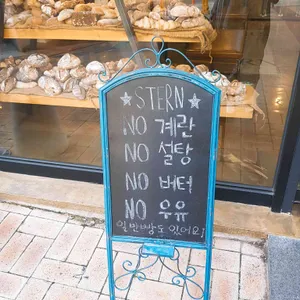 ☆STERN☆
NO 계란
NO 설탕
NO 버터
NO 우유
일반빵도 있어요!